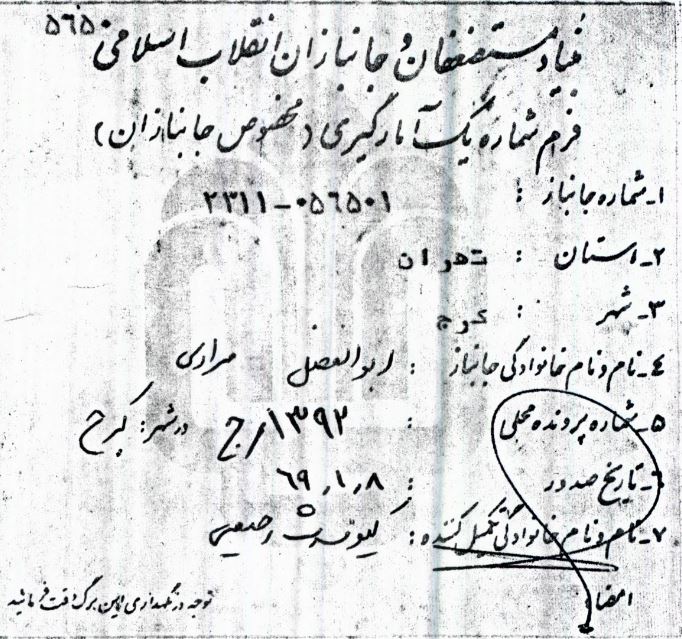 ۵۶۵۰
بنیاد مستضعفان و جانبازان انقلاب اسلامی
فرم شماره یک آمارگیری (مخصوص جانبازان)
۱-شماره جانباز : ۲۳۱۱-۰۵۶۵۰۱
۲-استان : تهران
۳-شهر : کرج
۴-نام و نام خانوادگی جانباز : ابوالفضل مرادی
۵-شماره پرونده محلی : ۱۳۹۲/ج در شهر: کرج
۶-تاریخ صدور : ۶۹,۱,۸
۷-نام و نام خانوادگی تکمیل کننده :
امضاء
توجه در نگهداری این برگ دقت فرمائید